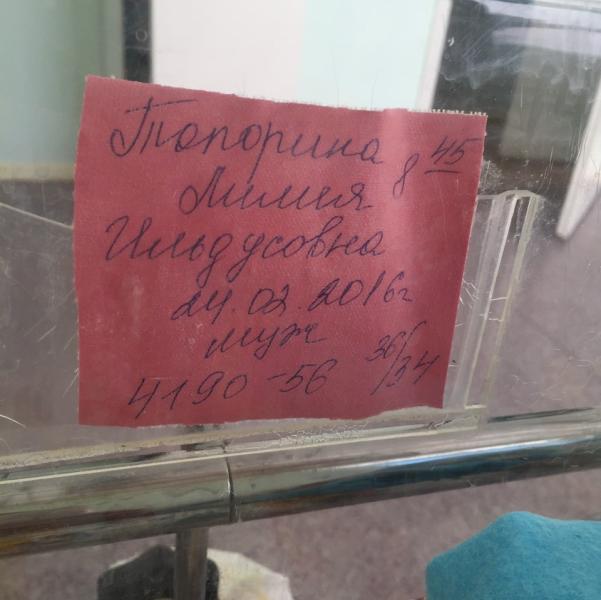 Топорина
8 45
Лилия
Ильдусовна
24.02.2016г
муж
4190-56 36/34